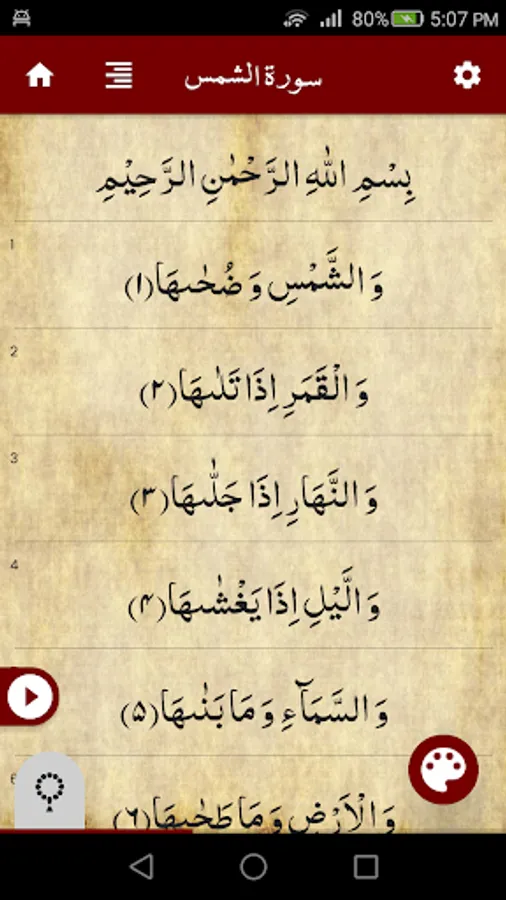 80% 5:07 PM
سورة الشمس
بِسْمِ اللّٰهِ الرَّحْمٰنِ الرَّحِيْمِ
1
وَ الشَّمْسِ وَ ضُحٰىهَا(۱)
2
وَ الْقَمَرِ اِذَا تَلٰىهَا(۲)
3
وَ النَّهَارِ اِذَا جَلّٰىهَا(۳)
4
وَ الَّیْلِ اِذَا یَغْشٰىهَا(۴)
وَ السَّمَآءِ وَ مَا بَنٰىهَا(۵)
6
وَ الْاَرْضِ وَ مَا طَحٰىهَا(۶)